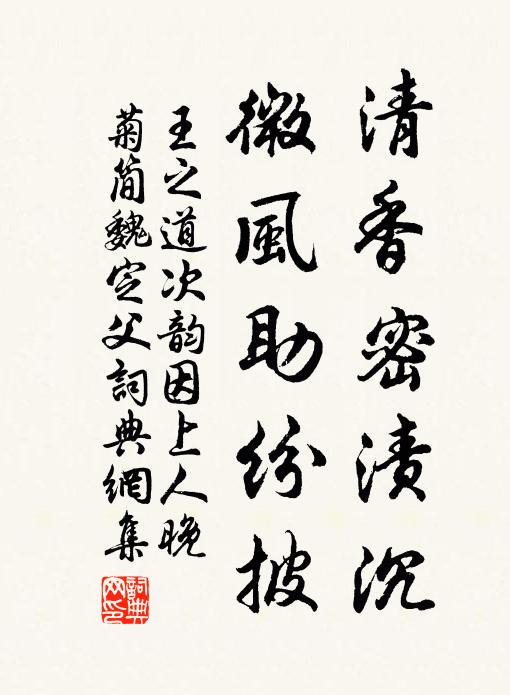 清香密漬沉
微風助紛披
王之道次韵因上人晚
菊簡魏定父詞典網集
詞典网印